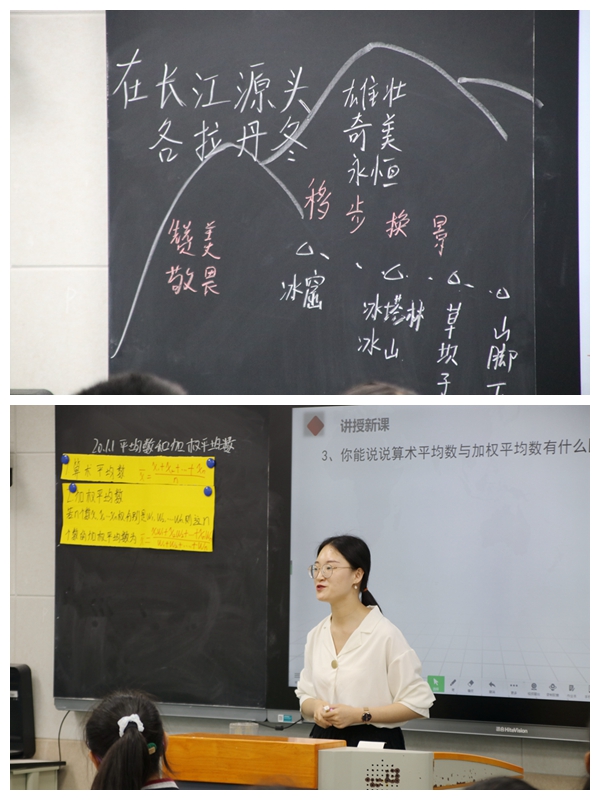 在长江源头
各拉丹冬
雄壮
奇美
永恒
移步换景
赞美
敬畏
冰窟
冰塔林
冰山
草坎子
山脚下
20.1.1 平均数和加权平均数
1.算术平均数
2.加权平均数
讲授新课
3、你能说说算术平均数与加权平均数有什么